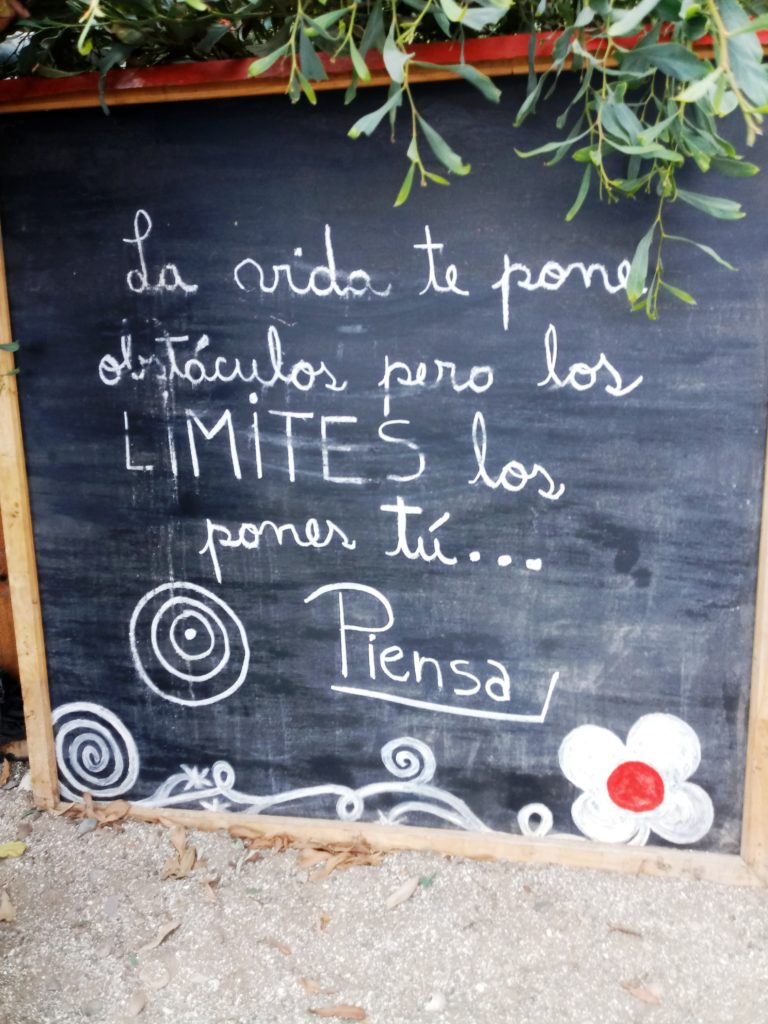 La vida te pone
obstáculos pero los
LIMITES los
pones tú...
Piensa